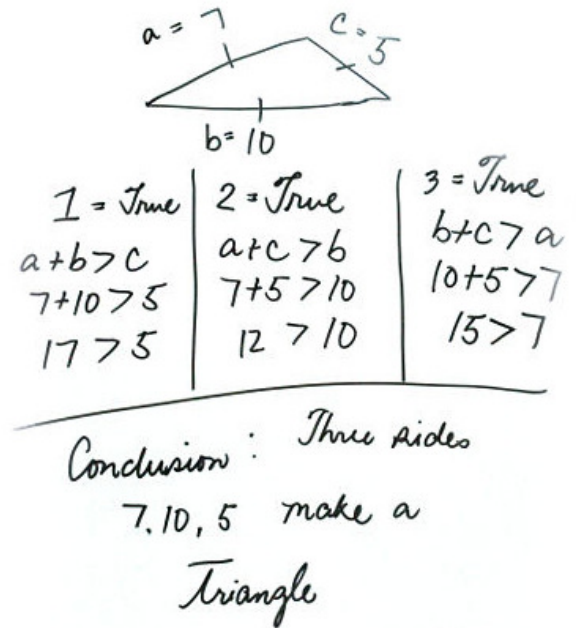 a = 7
c = 5
b = 10
1 = True
a+b>c
7+10>5
17>5
2 = True
a+c>b
7+5>10
12 >10
3 = True
b+c>a
10+5>7
15>7
Conclusion : Three sides
7.10, 5 make a
Triangle